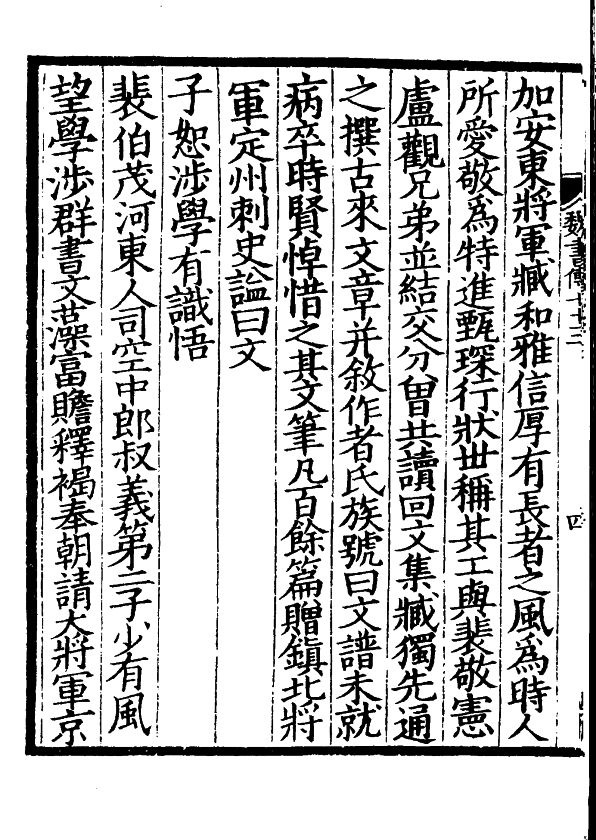 魏書傳七十三
四
加安東將軍臧和雅信厚有長者之風爲時人
所愛敬爲特進甄琛行狀世稱其工與裴敬憲
盧觀兄弟並結交分曾共讀回文集臧獨先通
之撰古來文章并敘作者氏族號曰文譜未就
病卒時賢悼惜之其文筆凡百餘篇贈鎮北將
軍定州刺史謚曰文
子恕涉學有識悟
裴伯茂河東人司空中郎叔義第二子少有風
望學涉群書文藻富贍釋褐奉朝請大將軍京